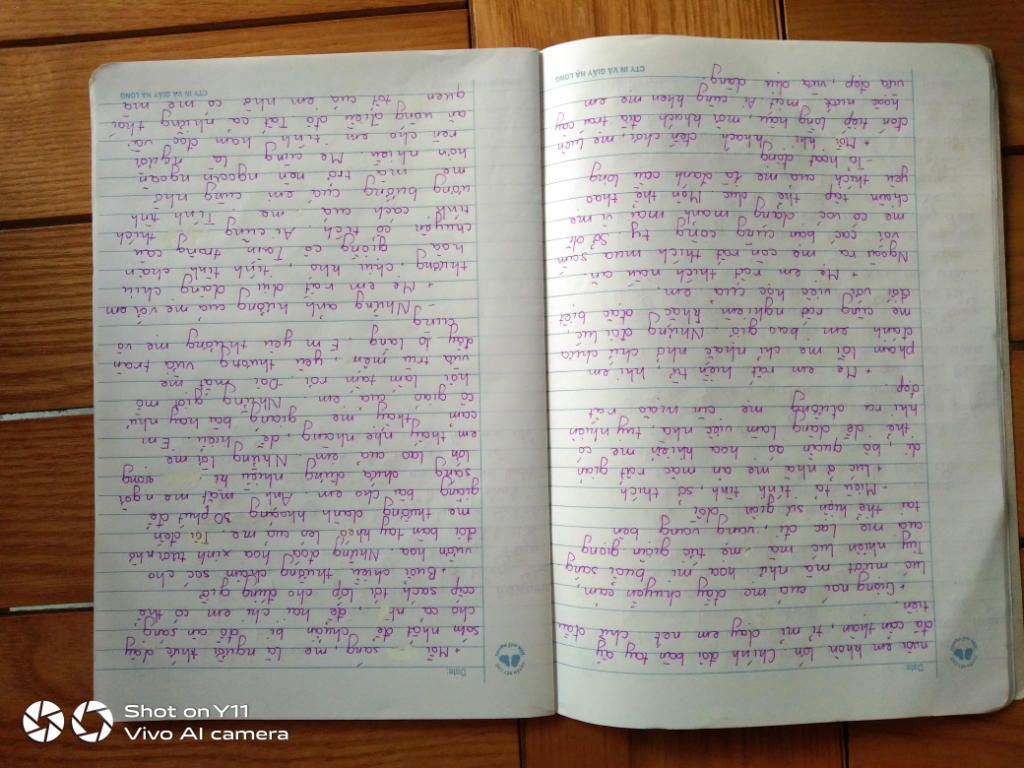 Date:
nuôi em khôn lớn. Chính đôi bàn tay ấy
đã cẩn thận, tỉ mỉ dạy em nét chữ đầu
tiên
+ Giọng nói của mẹ đầy chuyền cảm,
lúc mượt mà như hoạ mi buổi sáng
Tuy nhiên lúc mà mẹ tức giận giọng
của mẹ lạc đi, vang vang bên
tai thể hiện sự giận dỗi
- Miêu tả tính tình, sở thích
+ Lúc ở nhà mẹ ăn mặc rất giản
dị, bộ quần áo hoa khiến mẹ có
thể dễ dàng làm việc nhà, tuy nhiên
khi ra đường mẹ ăn mặc rất
đẹp
+ Mẹ em rất hiền từ, khi em
phạm lỗi mẹ chỉ nhắc nhở chứ chưa
đánh em bao giờ. Nhưng đôi lúc
mẹ cũng rất nghiêm khắc đặc biệt
đối với việc học của em.
+ Mẹ em rất thích nấu ăn.
Ngoài ra mẹ còn rất thích mua sắm
với các bạn cùng công ty. Sở dĩ
mẹ có vóc dáng mảnh mai vì mẹ
chăm tập thể dục. Môn thể thao
yêu thích của mẹ là đánh cầu lông
- Tả hoạt động
+ Mỗi khi khách đến chơi, mẹ luôn
đón tiếp lòng hậu, mời khách đĩa trái cây
hoặc nước mát. Ai cũng khen mẹ em
vừa đẹp, vừa dịu dàng.
CTY IN VÀ GIẤY HẠ LONG
Date:
+ Mỗi sáng, mẹ là người thức dậy
sớm nhất để chuẩn bị đồ ăn sáng
cho cả nhà, để hai chị em có thể
cắp sách tới lớp cho đúng giờ
+ Buổi chiều thường chăm sóc cho
vườn hoa. Những đoá hoa xinh tươi nhờ
đôi bàn tay khéo léo của mẹ. Tối đến
mẹ thường dành khoảng 30 phút để
giảng bài cho em. Ánh mắt mẹ ngời
sáng chứa đựng nhiều hi vọng
lớn lao của em. Những lời mẹ
em thầy nhẹ nhàng, dễ hiểu. Em
cảm thấy mẹ giảng bài hay như
cô giáo của em. Những giọt mồ
hôi lấm tấm rơi. Đôi mắt mẹ
vừa trìu mến yêu thương vừa tràn
đầy lo lắng. Em yêu thương mẹ vô
cùng
- Những ảnh hưởng của mẹ với em
+ Mẹ em rất dịu dàng chịu
thương, chịu khó, tính tình chan
hoà giống cô Tấm trong câu
chuyện cổ tích. Ai cũng thích
tính cách của mẹ. Tính tình
ương bướng của em cũng nhờ
mẹ mà trở nên ngoan ngoãn
hơn nhiều. Mẹ cũng là người
rèn cho em tính ham đọc và
ăn uống điều độ. Tất cả những thói
quen tốt của em nhờ có mẹ mà
CTY IN VÀ GIẤY HẠ LONG
Shot on Y11
Vivo AI camera